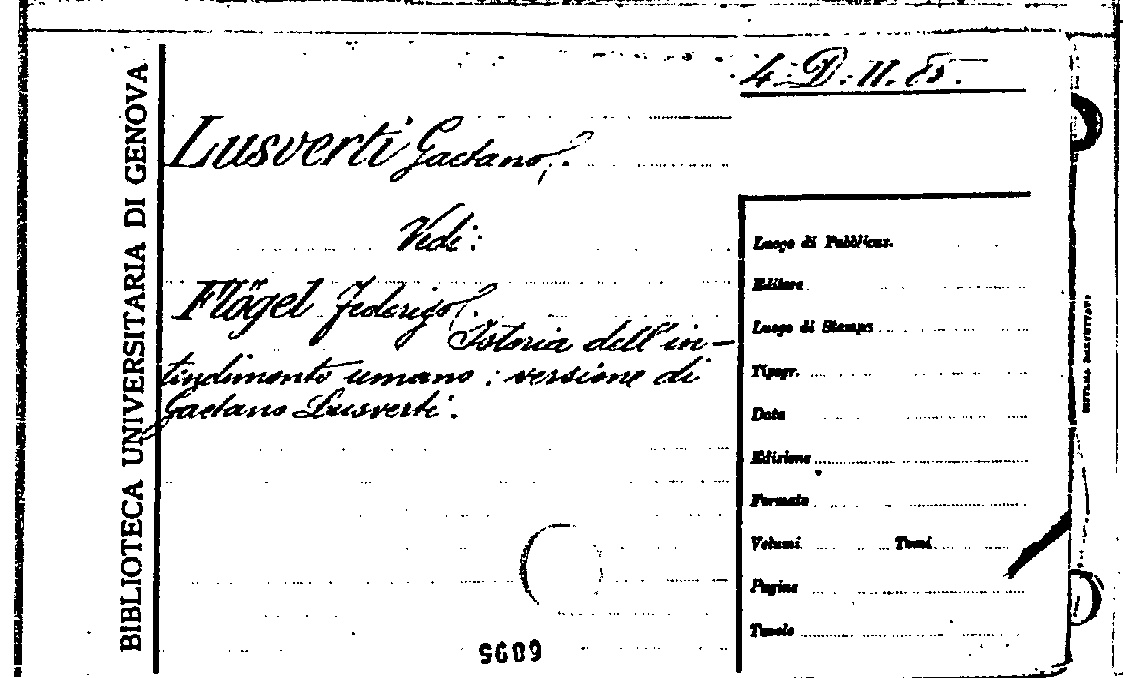 BIBLIOTECA UNIVERSITARIA DI GENOVA
4. D. II. 85.
Lusverti Gaetano.
Vedi:
Flögel Federigo.
Istoria dell'in-
tendimento umano: versione di
Gaetano Lusverti.
Luogo di Pubblicaz.
Editore
Luogo di Stampa
Tipogr.
Data
Edizione
Formato
Volumi Tomi
Pagine
Tavole